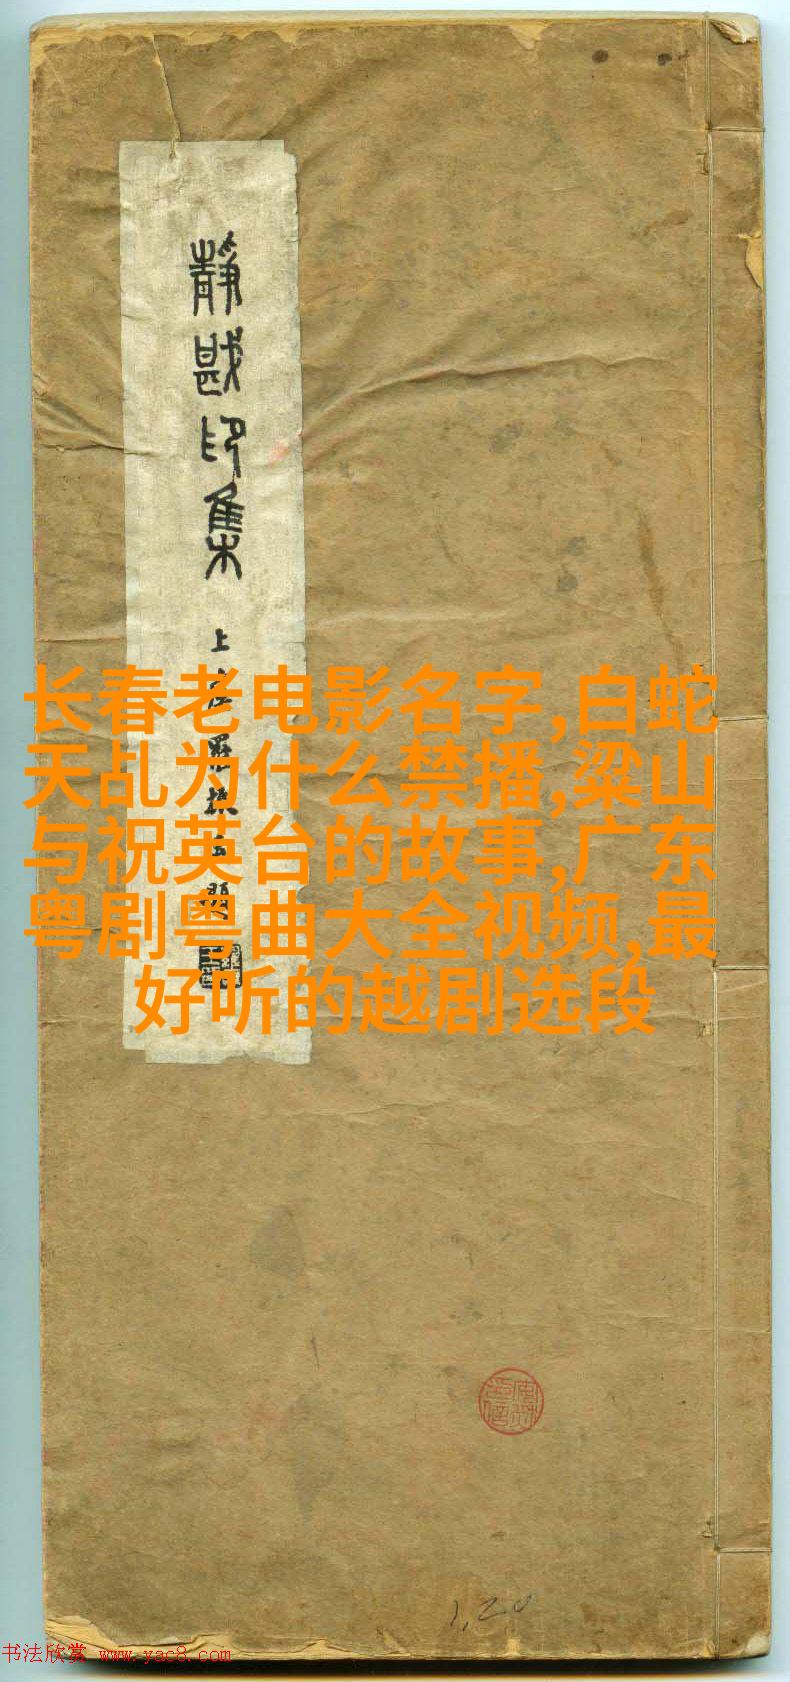 靜戡印集
上虞羅振玉題
长春老电影名字,白蛇
天乩为什么禁播,粱山
与祝英台的故事,广东
粤剧粤曲大全视频,最
好听的越剧选段
1,20
书法欣赏 www.yac8.com